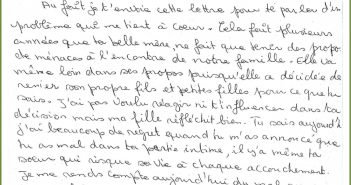 Au fait je t'envoie cette lettre pour te parler d'un
problème qui me tient à cœur. Cela fait plusieurs
années que ta belle mère, ne fait que tenir des propos
de menaces à l'encontre de notre famille. Elle va
même loin dans ses propos puisqu'elle a décidée de
renier son propre fils et petites filles pour ce que tu
sais. J'ai pas voulu réagir ni t'influencer dans ta
décision mais ma fille réfléchit bien. Tu sais aujourd'h
j'ai beaucoup de regret quand tu m'as annoncé que
tu as mal dans ta partie intime, il y'a même ta
sœur qui risque sa vie à chaque accouchement.
Je me rends compte aujourd'hui du mal